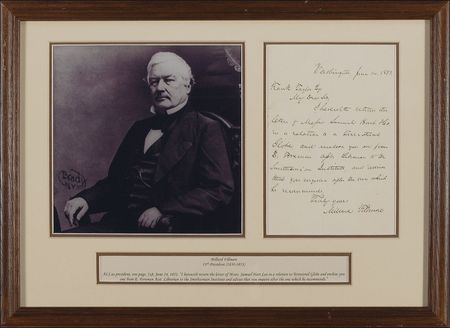 Washington June 14, 1852
Frank Taylor Esq
My Dear Sir,
I herewith return the
letter of Messrs Samuel Hart &co
in a relation to a terrestrial
Globe and enclose you one from
E. Foreman Asst Librarian to the
Smithsonian Institute and advise
that you enquire after the one which
he recommends.
Truly yours
Millard Fillmore
Brady
N.Y.
Millard Fillmore
13th President (1850-1853)
ALS as president, one page, 7x9, June 14, 1852. "I herewith return the letter of Messrs. Samuel Hart &co in a relation to terrestrial Globe and enclose you
one from E. Foreman Asst. Librarian to the Smithsonian Institute and advise that you enquire after the one which he recommends."